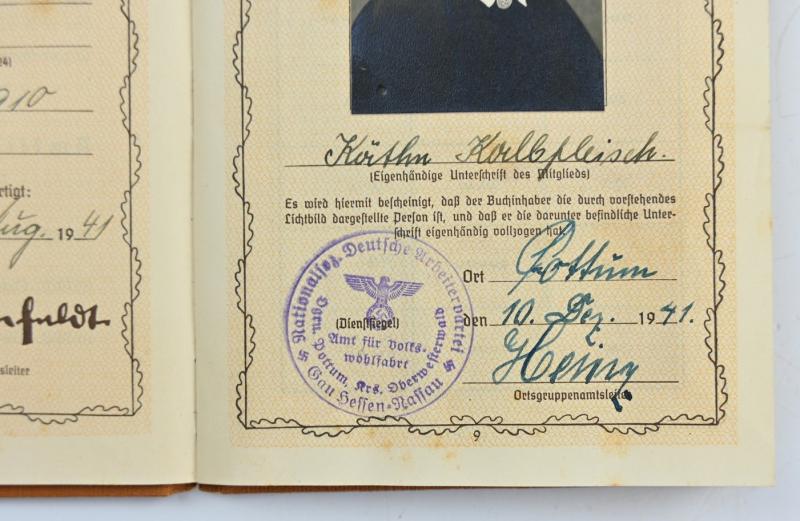 24)
910
rtigt:
Aug. 1941
nfeldt.
sleiter
Käthe Kalbfleisch.
(Eigenhändige Unterschrift des Mitglieds)
Es wird hiermit bescheinigt, daß der Buchinhaber die durch vorstehendes
Lichtbild dargestellte Person ist, und daß er die darunter befindliche Unter-
schrift eigenhändig vollzogen hat.
Ort Pottum
den 10. Dez. 1941.
Ortsgruppenamtsleiter
Nationalsoz. Deutsche Arbeiterpartei
(Dienstsiegel)
Amt für Volks-
wohlfahrt
Pottum, Krs. Oberwesterwald
Gau Hessen-Nassau
9